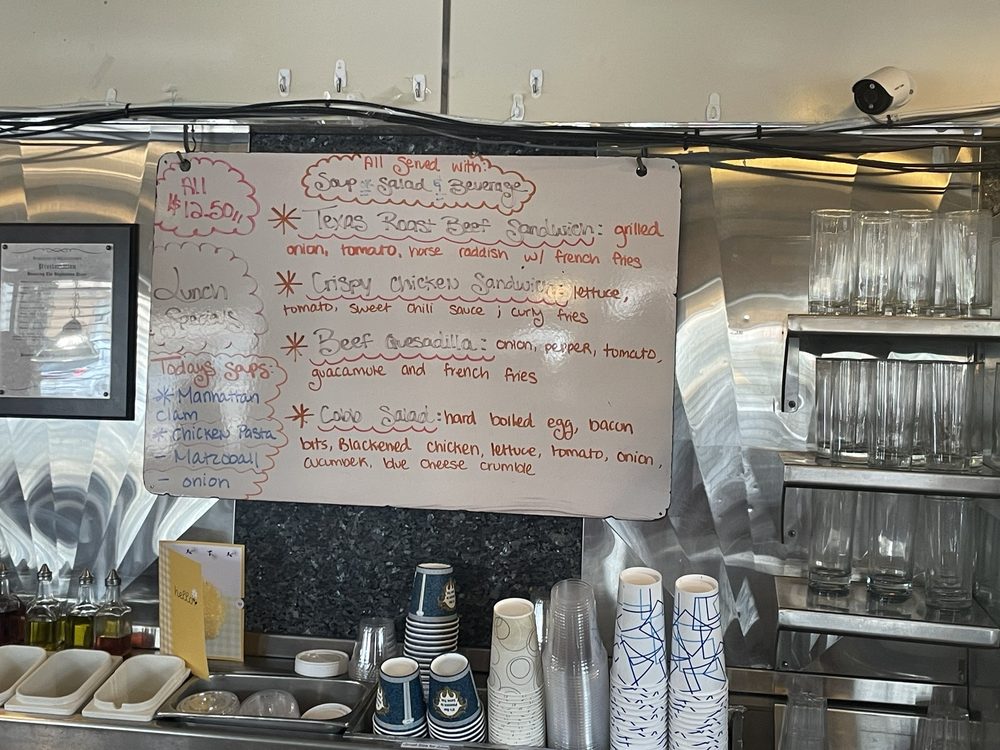 All
$12.50
Lunch
Specials
Todays soups:
* Manhattan
clam
* Chicken Pasta
- Matzoball
- onion
All Served with:
Soup * Salad & Beverage
* Texas Roast Beef Sandwich: grilled
onion, tomato, horse raddish w/ french fries
* Crispy Chicken Sandwich: lettuce,
tomato, sweet chili sauce ; curly fries
* Beef Quesadilla: onion, pepper, tomato,
guacamole and french fries
* Cobb Salad: hard boiled egg, bacon
bits, Blackened chicken, lettuce, tomato, onion,
cucumber, blue cheese crumble
Proclamation
hello